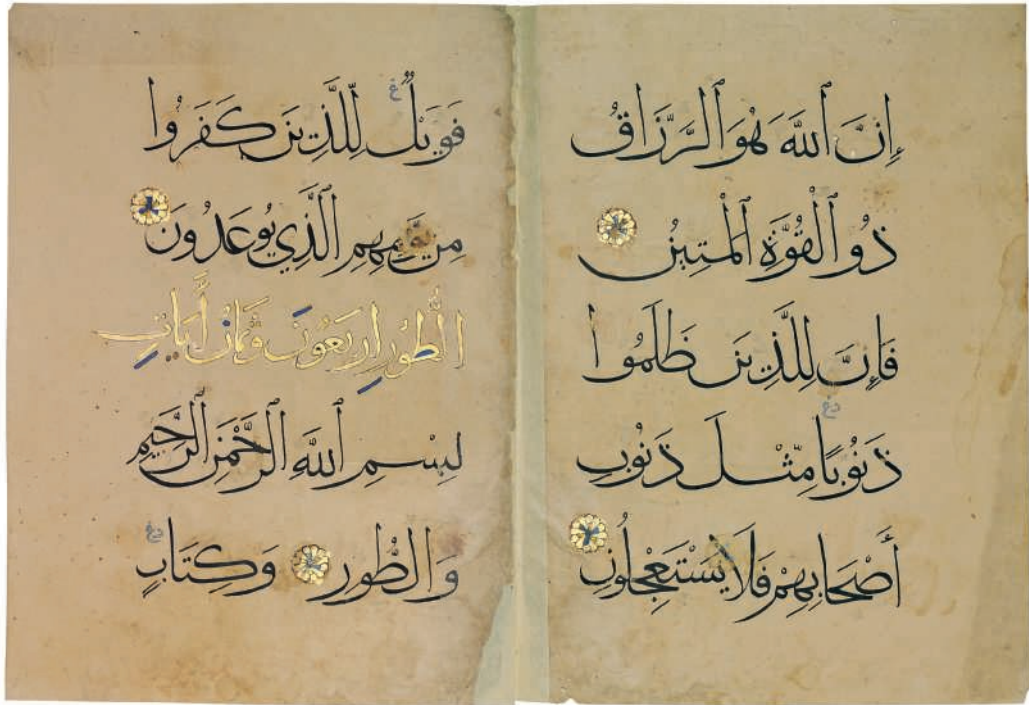 إِنَّ ٱللَّهَ هُوَ ٱلرَّزَّاقُ
ذُو ٱلْقُوَّةِ ٱلْمَتِينُ
فَإِنَّ لِلَّذِينَ ظَلَمُوا
ذَنُوبًا مِّثْلَ ذَنُوبِ
أَصْحَابِهِمْ فَلَا يَسْتَعْجِلُونِ
فَوَيْلٌ لِّلَّذِينَ كَفَرُوا
مِن يَوْمِهِمِ ٱلَّذِي يُوعَدُونَ
الطُّورِ اربَعُونَ وَثَمَانُ أَيَاتٍ
بِسْمِ ٱللَّهِ ٱلرَّحْمَنِ ٱلرَّحِيمِ
وَالطُّورِ وَكِتَابٍ